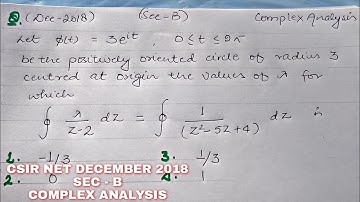 Q. (Dec-2018) (Sec-B) Complex Analysis
Let φ(t) = 3e^{it}, 0≤t≤2π
be the positively oriented circle of radius 3
centred at origin the values of λ for
which
∮ λ/(z-2) dz = ∮ 1/(z²-5z+4) dz is
1. -1/3 3. 1/3
2. 0 4. 1
CSIR NET DECEMBER 2018
SEC - B
COMPLEX ANALYSIS